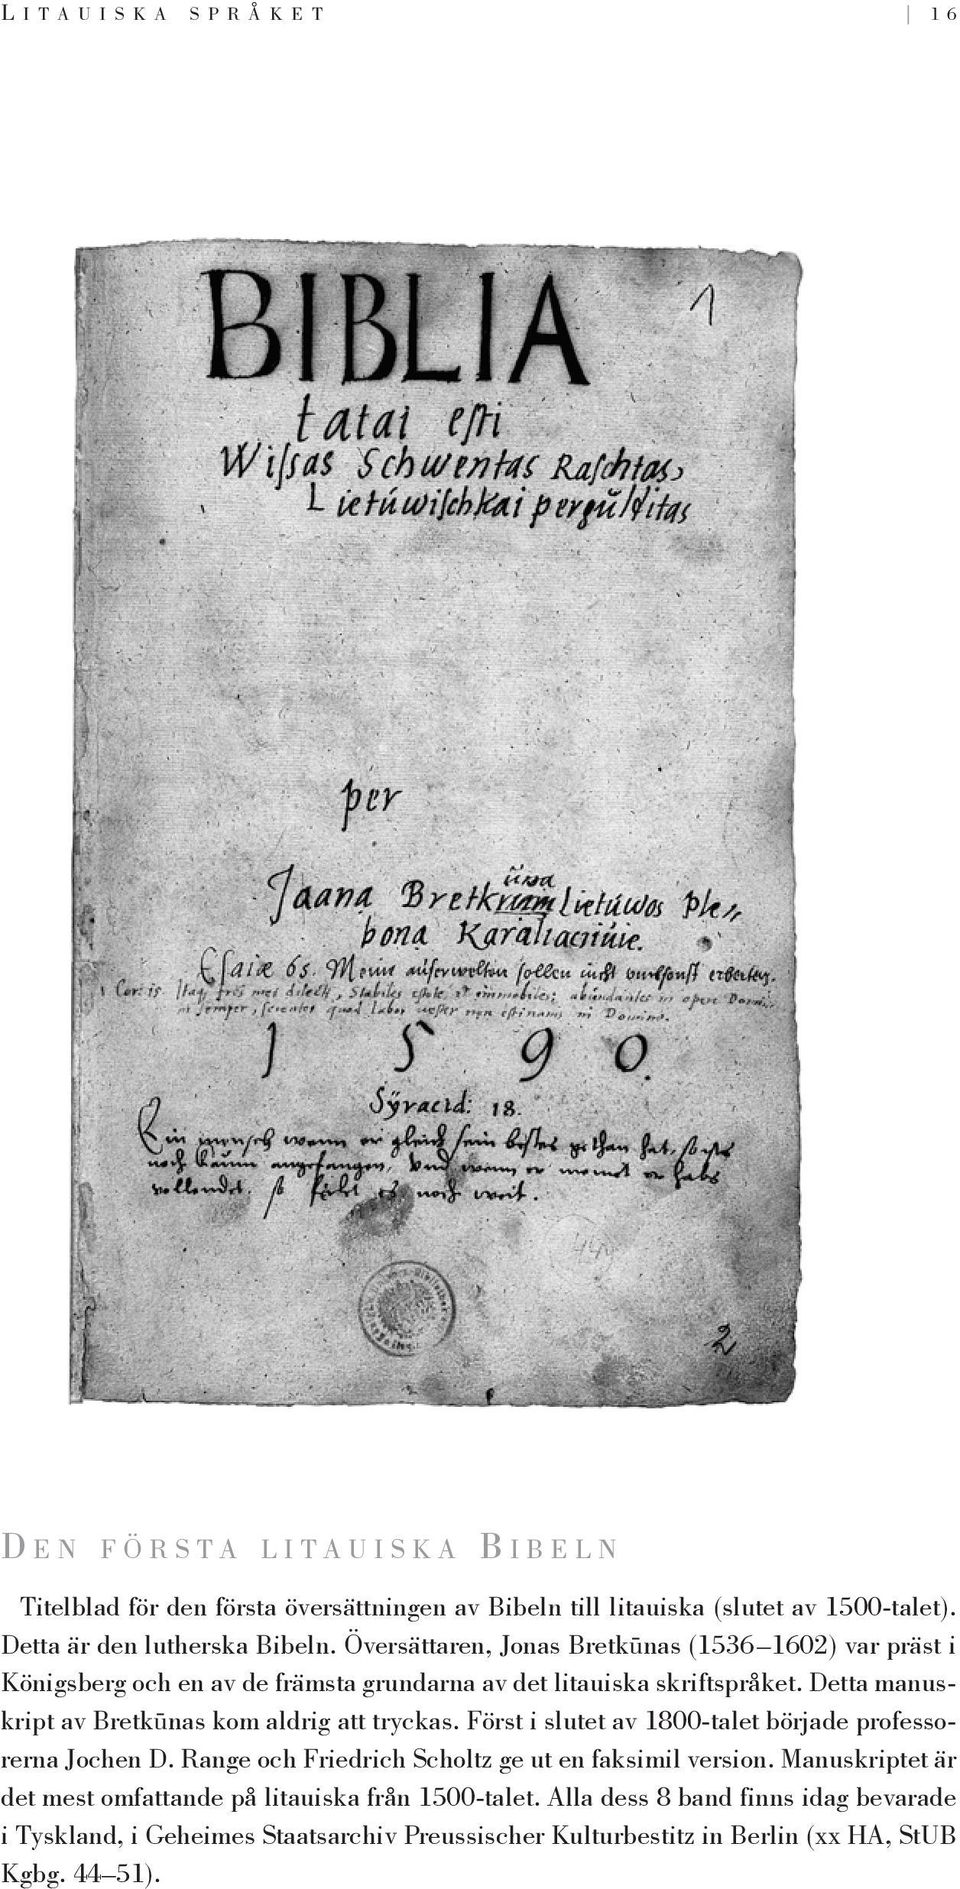 LITAUISKA SPRÅKET | 16
BIBLIA 1
tatai eſti
Wiſsas Schwentas Raſchtas,
Lietúwiſchkai pergŭlditas
per
ūną
Jaaną Bretkunam Lietúwos Ple⸗
boną Karaliaciuie.
Eſaiæ 65. Meine auſerwelten ſollen nicht vmbſonſt erbeiten.
1 Cor: 15. Itaq fres mei dilecti, Stabiles eſtote et immobiles; abundantes in opere Domi⸗
ni ſemper, ſcientes quod labor veſter non eſt inanis in Domino.
1590.
Sÿracid: 18.
Ein menſch wenn er gleich ſein beſtes gethan hat, ſo iſts
noch kaum angefangen, Vnd wenn er meinet er habs
vollendet, ſo feilet es noch weit.
2
DEN FÖRSTA LITAUISKA BIBELN
Titelblad för den första översättningen av Bibeln till litauiska (slutet av 1500-talet).
Detta är den lutherska Bibeln. Översättaren, Jonas Bretkūnas (1536–1602) var präst i
Königsberg och en av de främsta grundarna av det litauiska skriftspråket. Detta manus-
kript av Bretkūnas kom aldrig att tryckas. Först i slutet av 1800-talet började professo-
rerna Jochen D. Range och Friedrich Scholtz ge ut en faksimil version. Manuskriptet är
det mest omfattande på litauiska från 1500-talet. Alla dess 8 band finns idag bevarade
i Tyskland, i Geheimes Staatsarchiv Preussischer Kulturbestitz in Berlin (xx HA, StUB
Kgbg. 44–51).